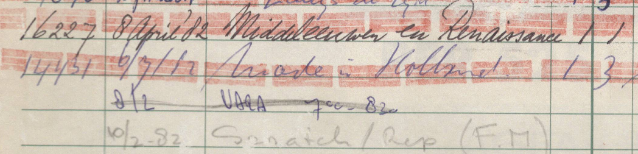 16227 8 April '82 Middeleeuwen en Renaissance 1 1
14431 Made in Holland 1 3
8/2 VARA
10/2-82 Scratch / Rep (F.M)